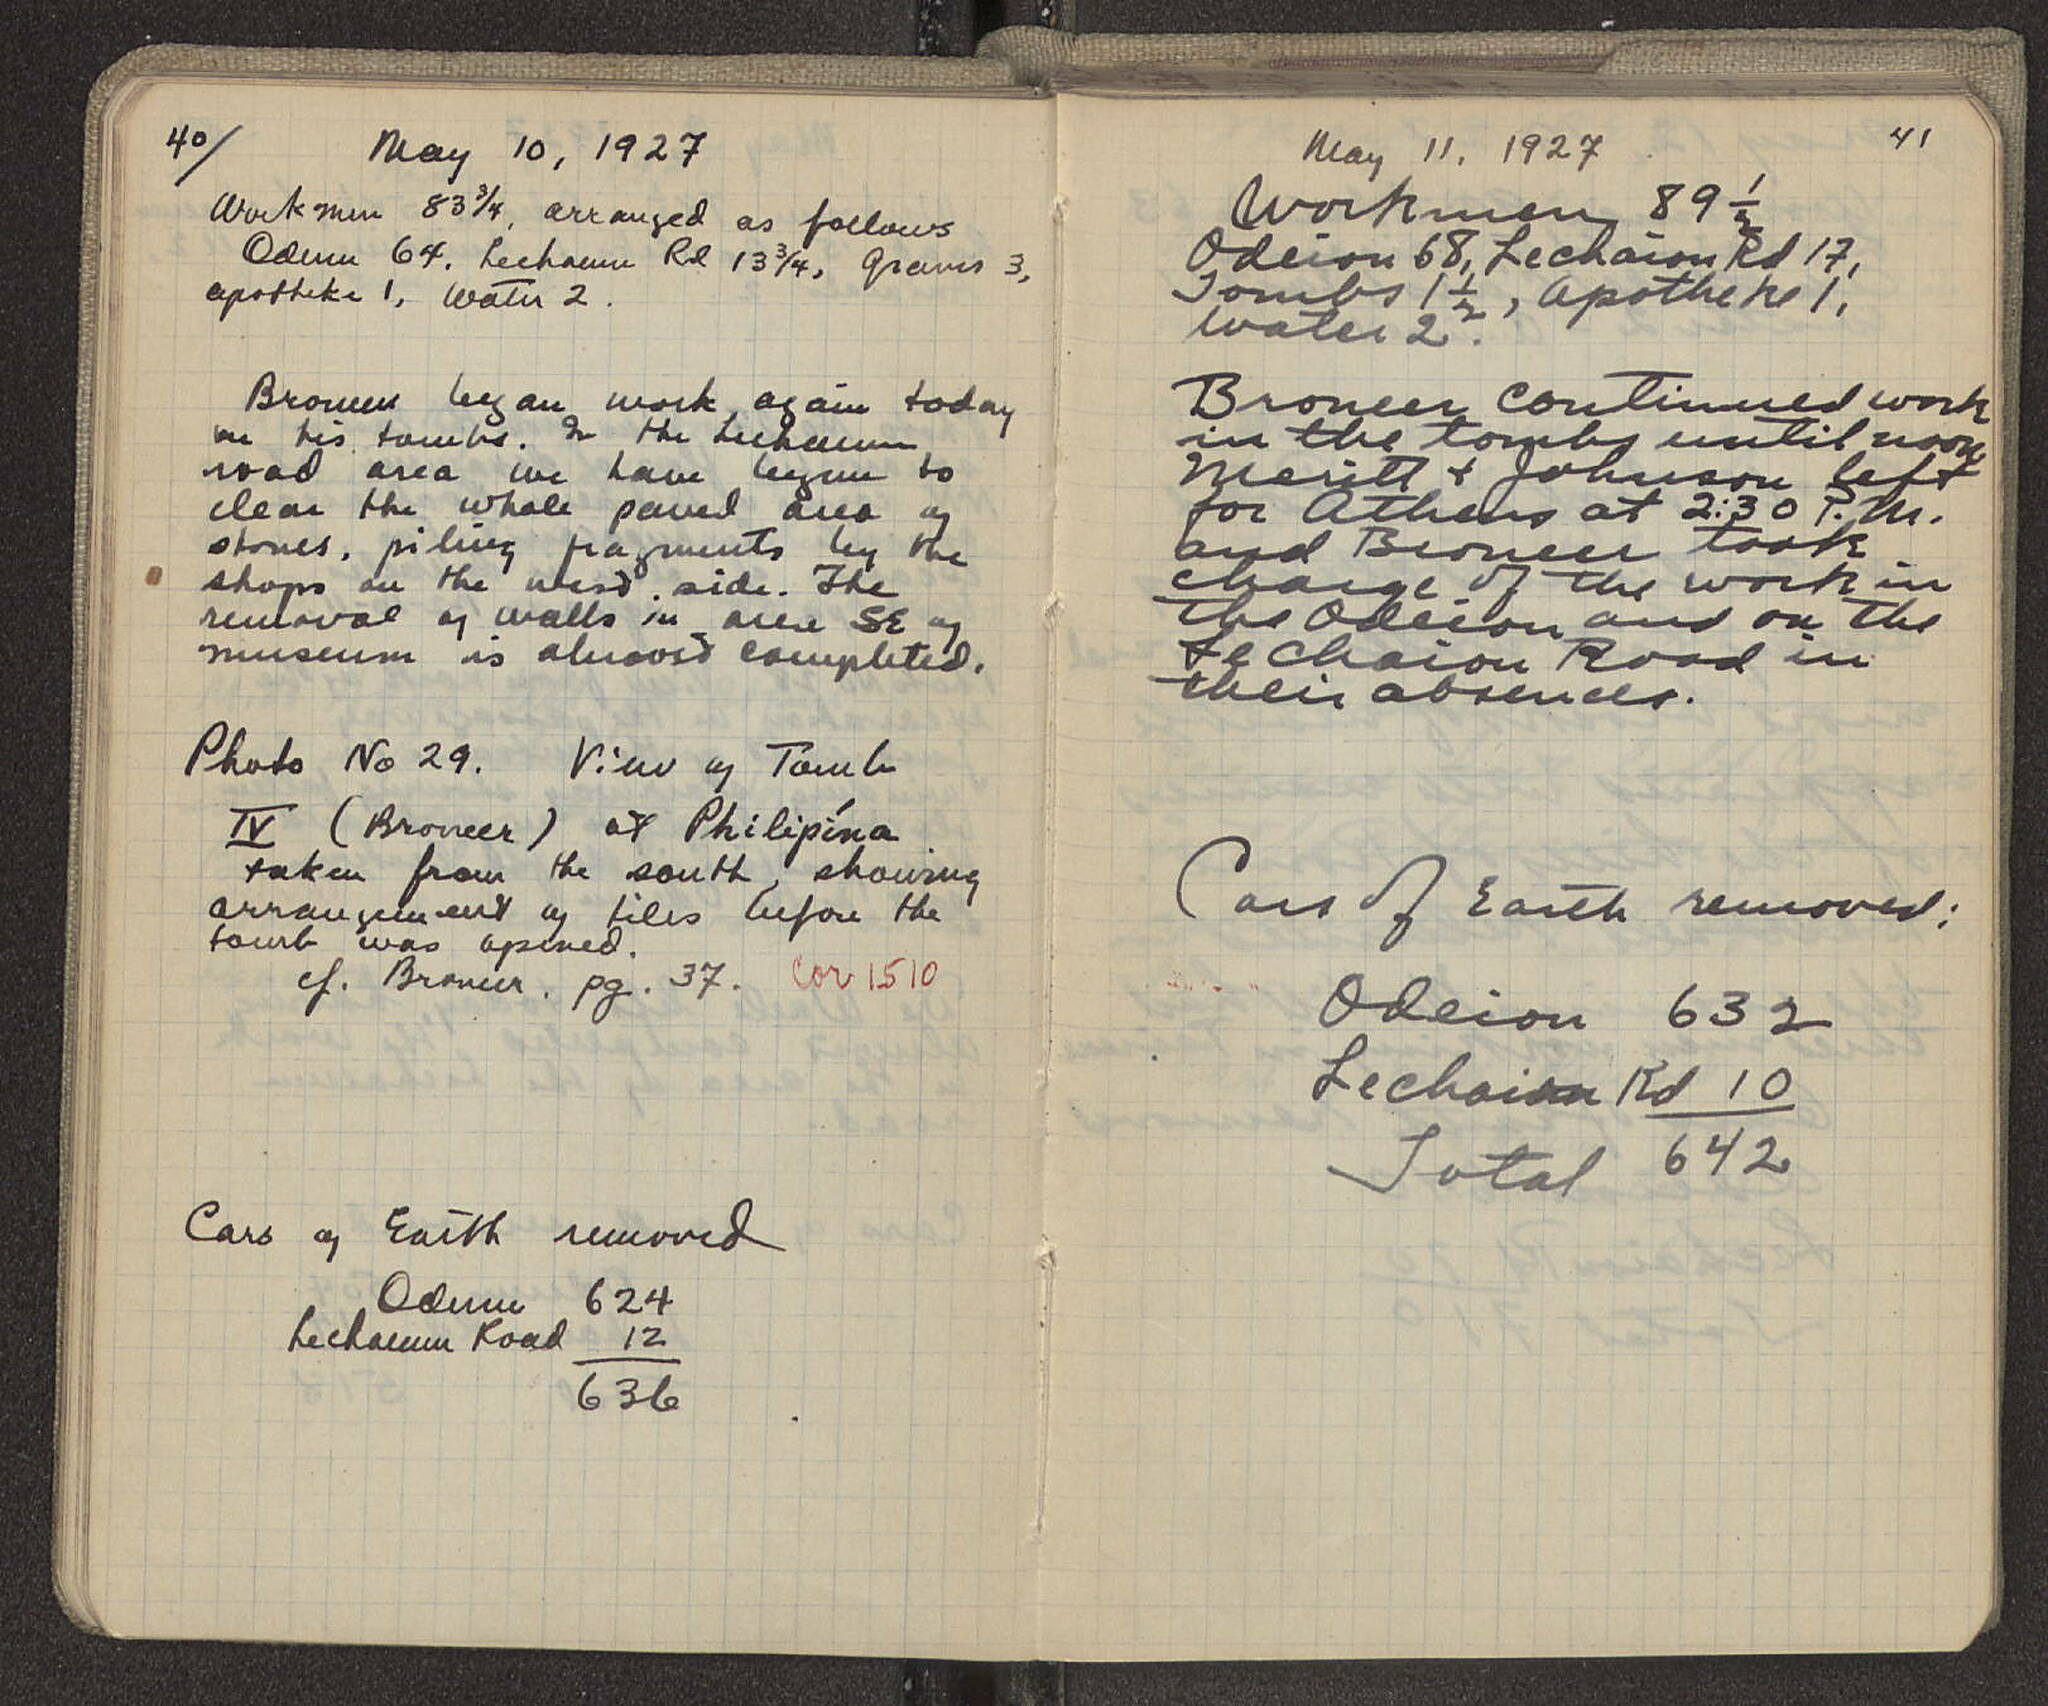 40/
May 10, 1927
Workmen 83 3/4, arranged as follows
Odeum 64, Lechaeum Rd 13 3/4, Graves 3,
apotheke 1, Water 2.
Broneer began work again today
on his tombs. In the Lechaeum
road area we have begun to
clear the whole paved area of
stones, piling fragments by the
shops on the west side. The
removal of walls in area SE of
museum is almost completed.
Photo No 29. View of Tomb
IV (Broneer) at Philipína
taken from the south, showing
arrangement of tiles before the
tomb was opened.
cf. Broneer. pg. 37. Cor 1510
Cars of Earth removed
Odeum 624
Lechaeum Road 12
636
41
May 11, 1927
Workmen 89 1/2
Odeion 68, Lechaion Rd 17,
Tombs 1 1/2, Apotheke 1,
Water 2.
Broneer continued work
in the tombs until noon
Meritt + Johnson left
for Athens at 2:30 P.M.
and Broneer took
charge of the work in
the Odeion and on the
Lechaion Road in
their absences.
Cars of Earth removed:
Odeion 632
Lechaion Rd 10
Total 642